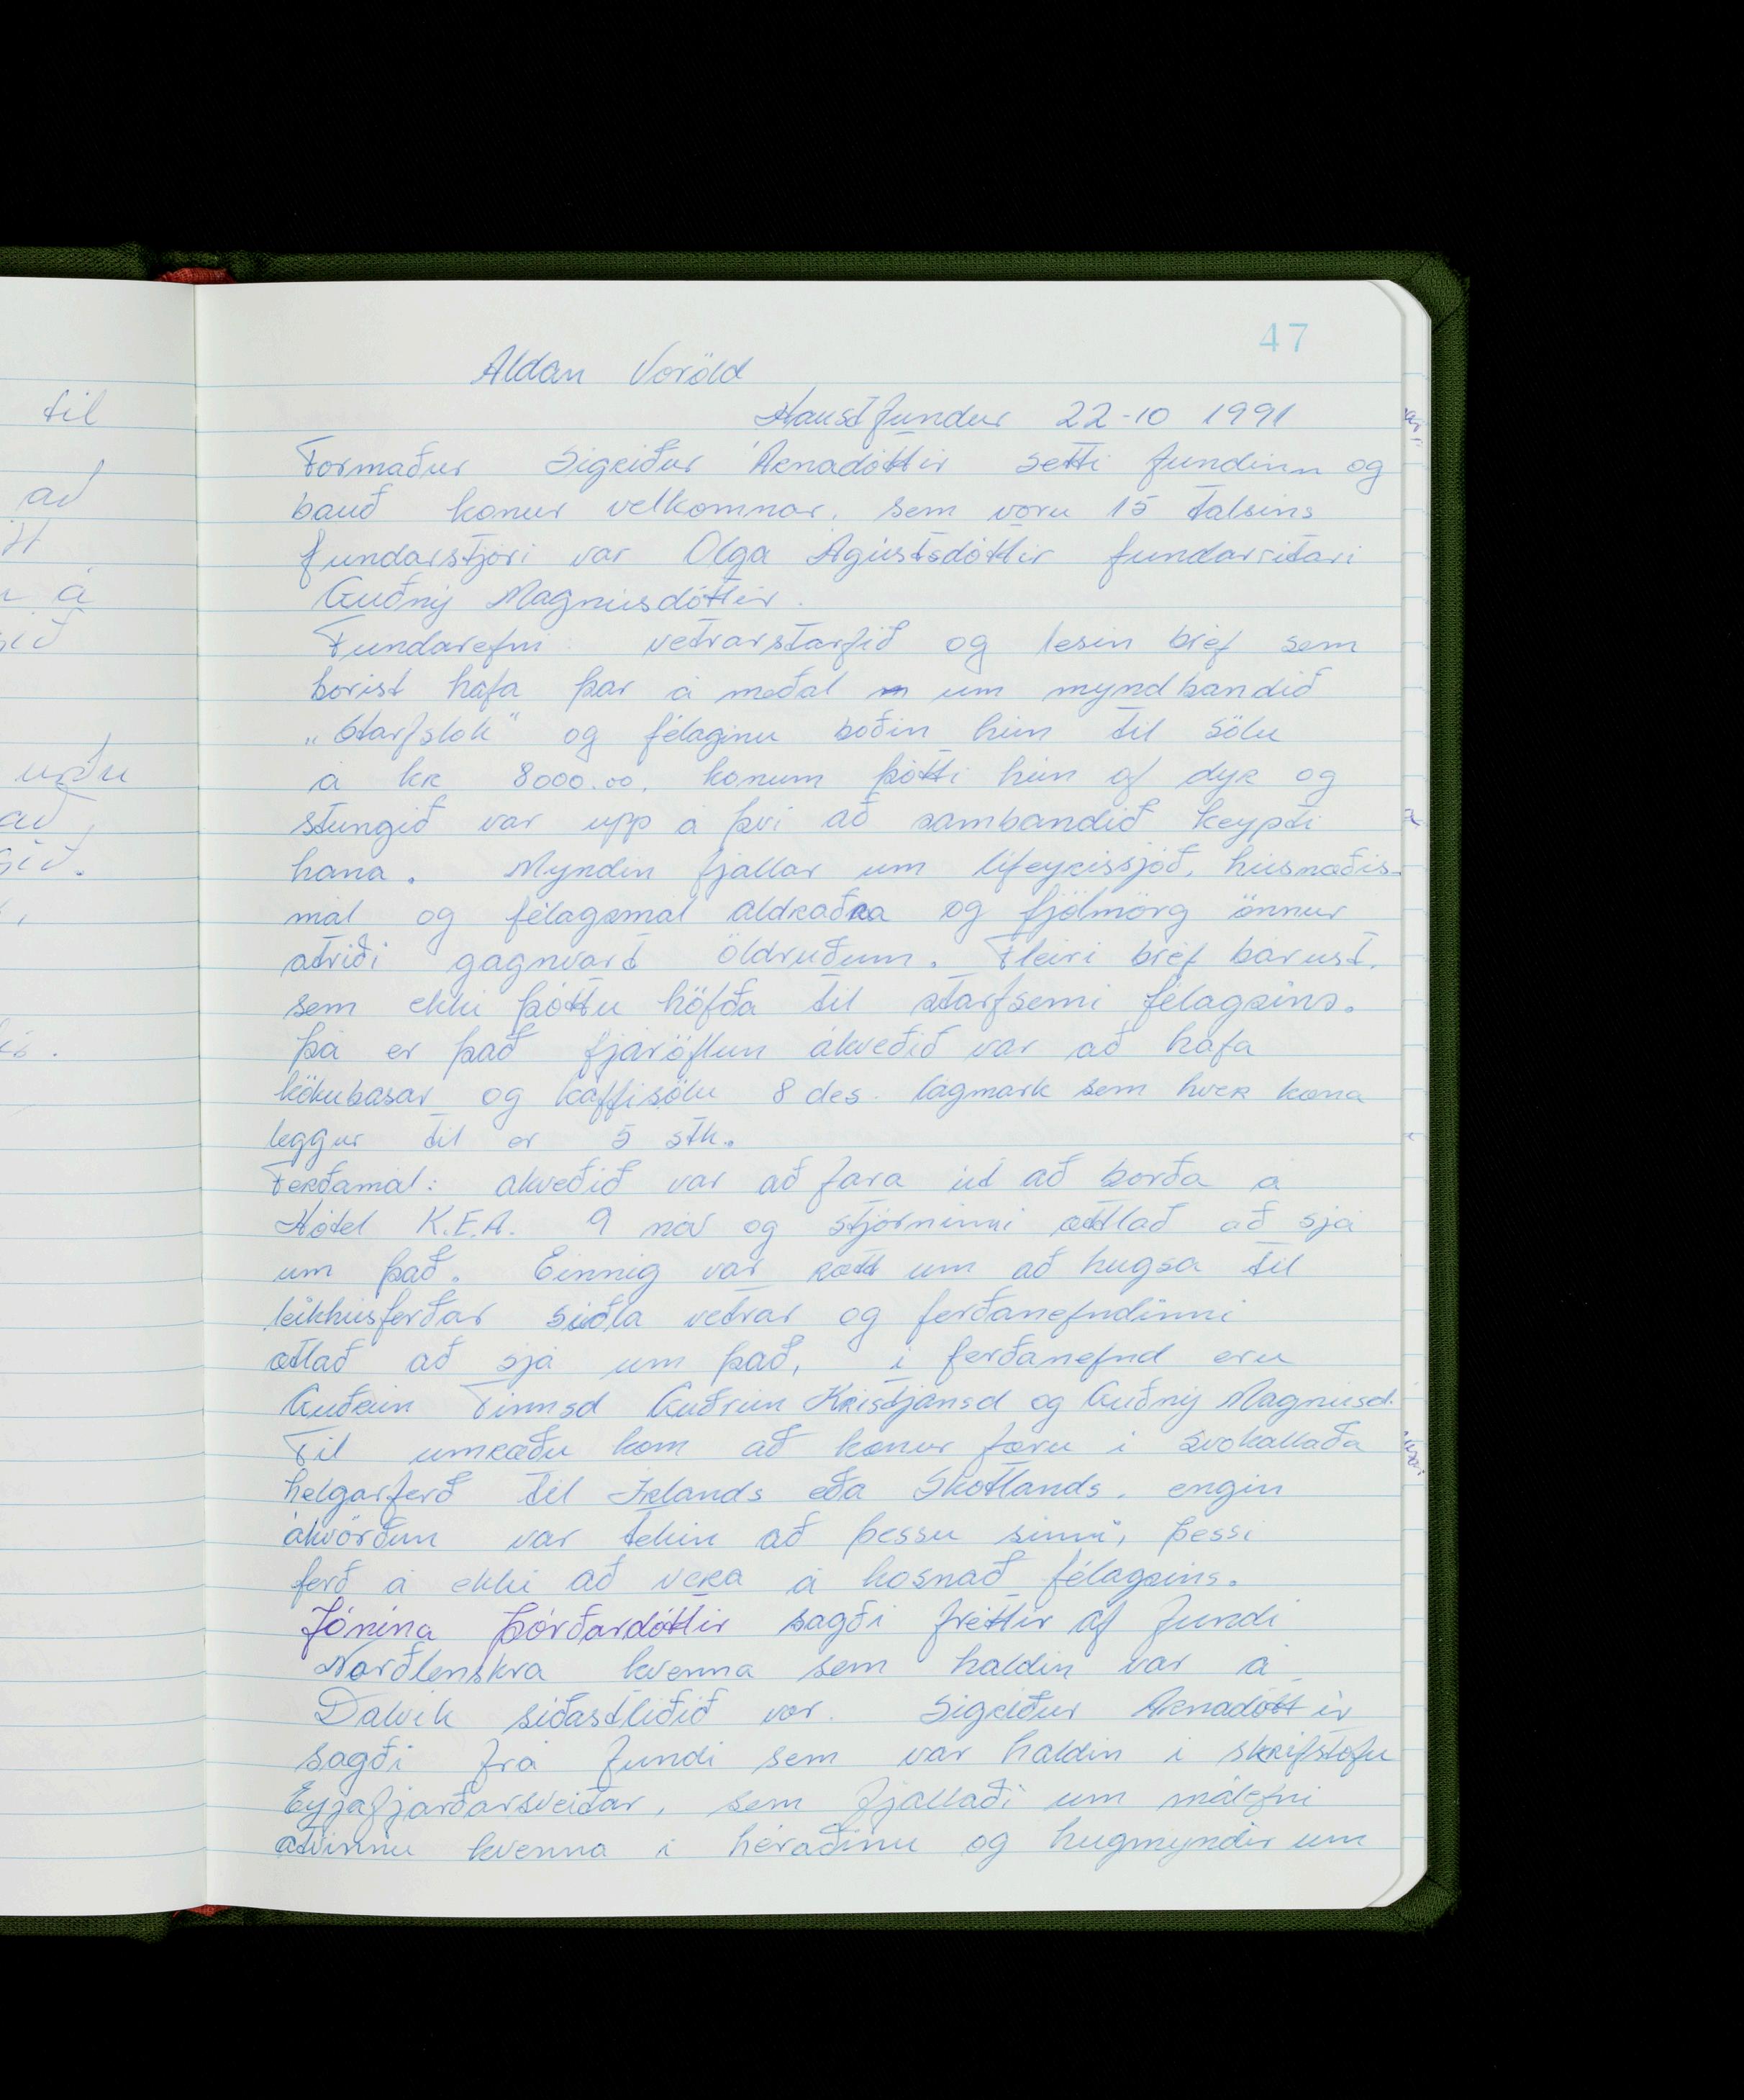 47
Aldan Voröld
Haustfundur 22-10 1991
Formaður Sigríður Árnadóttir setti fundinn og
bauð konur velkomnar, sem voru 15 talsins
fundarstjóri var Olga Ágústsdóttir fundarritari
Guðný Magnúsdóttir.
Fundarefni vetrarstarfið og lesin bréf sem
borist hafa þar á meðal um myndbandið
„Starfslok" og félaginu boðin hún til sölu
á kr 8000.00, konum þótti hún of dýr og
stungið var upp á því að sambandið keypti
hana. Myndin fjallar um lífeyrissjóð, húsnæðis-
mál og félagsmál aldraðra og fjölmörg önnur
atriði gagnvart öldruðum. Fleiri bréf bárust.
sem ekki þóttu höfða til starfsemi félagsins.
Þá er það fjáröflun ákveðið var að hafa
kökubasar og kaffisölu 8 des. lágmark sem hver kona
leggur til er 5 stk.
Ferðamál: ákveðið var að fara út að borða á
Hótel K.E.A. 9 nóv og stjórninni ætlað að sjá
um það. Einnig var rætt um að hugsa til
leikhúsferðar síðla vetrar og ferðanefndinni
ætlað að sjá um það, í ferðanefnd eru
Guðrún Finnsd Guðrún Kristjánsd og Guðný Magnúsd.
Til umræðu kom að konur færu í svokallaða
helgarferð til Írlands eða Skotlands, engin
ákvörðun var tekin að þessu sinni, þessi
ferð á ekki að vera á kosnað félagsins.
Jónína Þórðardóttir sagði fréttir af fundi
Norðlenskra kvenna sem haldin var á
Dalvík síðastliðið vor. Sigríður Árnadóttir
sagði frá fundi sem var haldin í skrifstofu
Eyjafjarðarsveitar, sem fjallaði um málefni
atvinnu kvenna í héraðinu og hugmyndir um